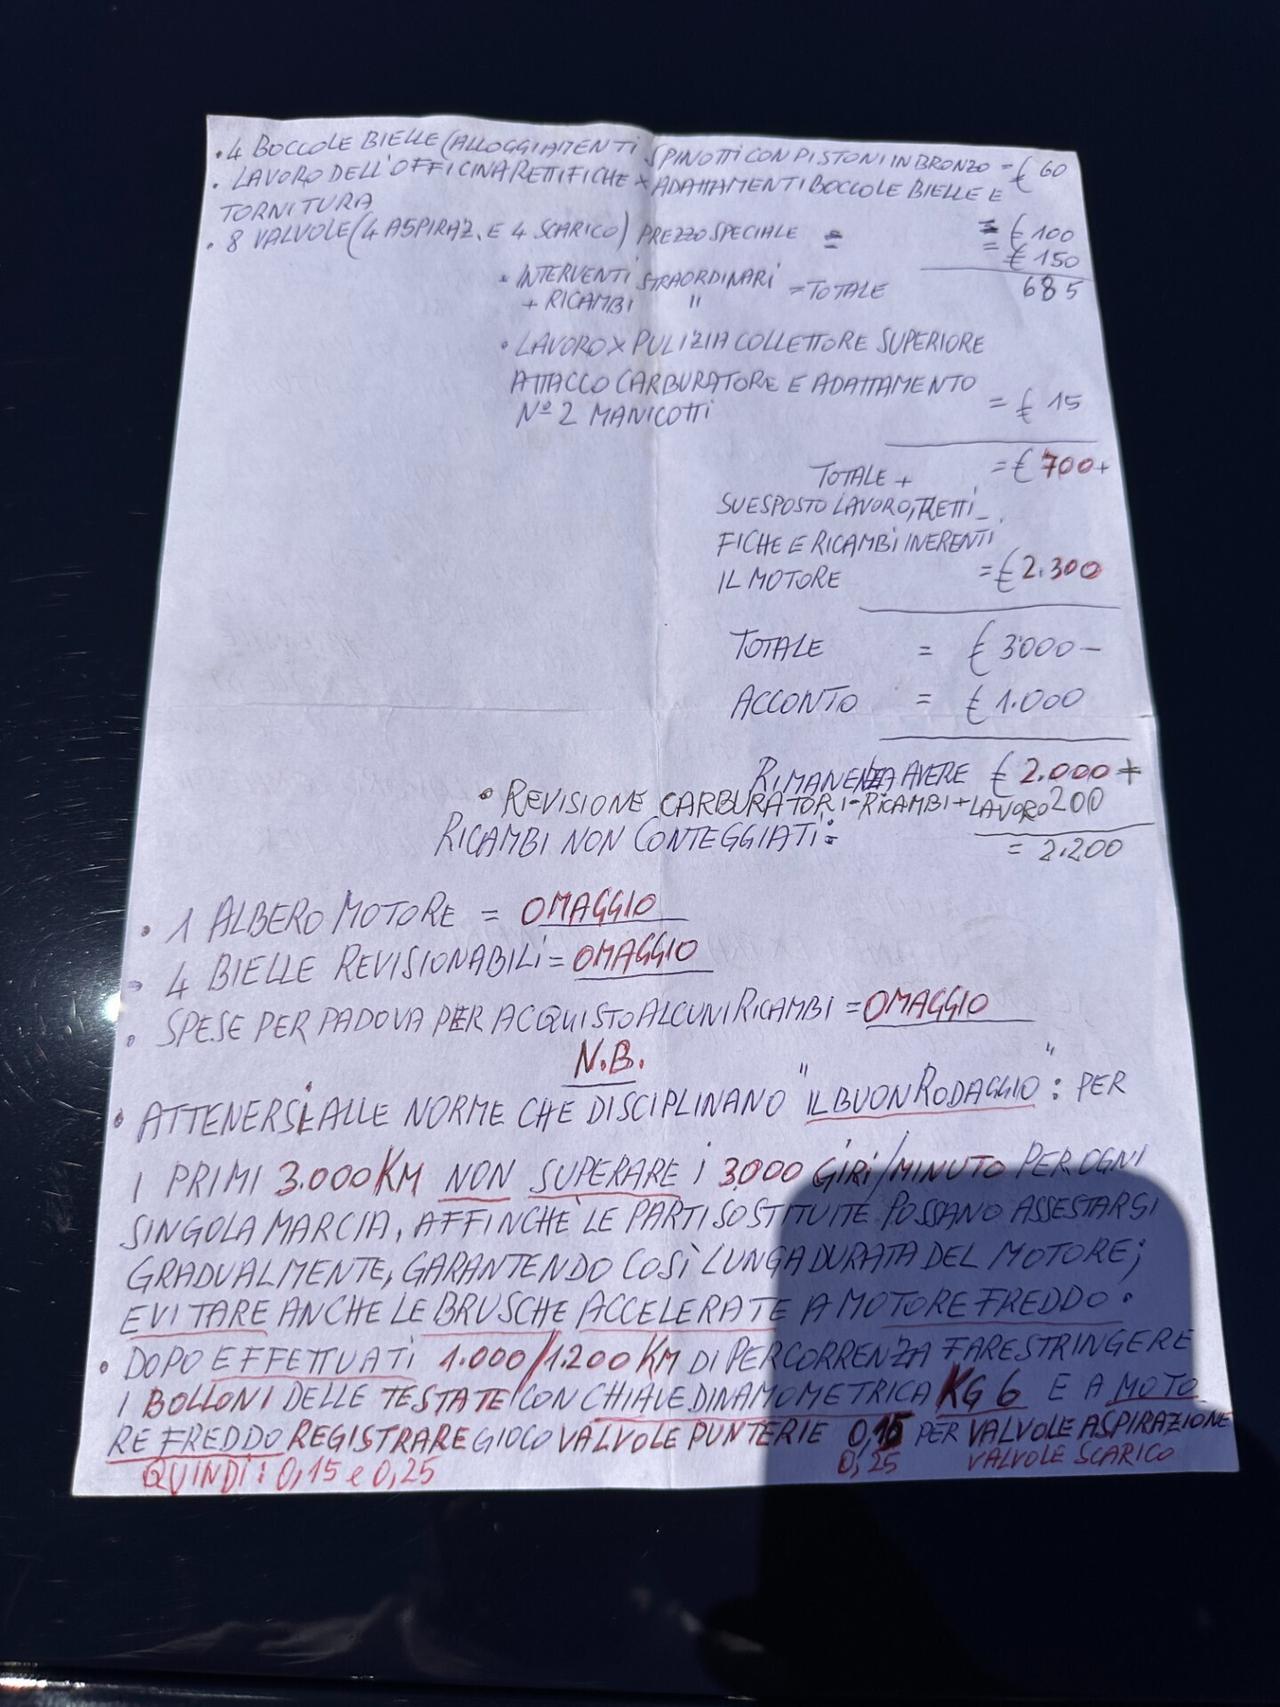 • 4 BOCCOLE BIELLE (ALLOGGIAMENTI SPINOTTI CON PISTONI IN BRONZO = € 60
• LAVORO DELL'OFFICINA RETTIFICHE X ADATTAMENTI BOCCOLE BIELLE E
TORNITURA = € 100
• 8 VALVOLE (4 ASPIRAZ. E 4 SCARICO) PREZZO SPECIALE = = € 150
• INTERVENTI STRAORDINARI
+ RICAMBI " = TOTALE 685
• LAVORO X PULIZIA COLLETTORE SUPERIORE
ATTACCO CARBURATORE E ADATTAMENTO
Nº 2 MANICOTTI = € 15
TOTALE + = € 700+
SUESPOSTO LAVORO, RETTI_
FICHE E RICAMBI INERENTI
IL MOTORE = € 2.300
TOTALE = € 3000 -
ACCONTO = € 1.000
RIMANENZA AVERE € 2.000 +
• REVISIONE CARBURATORI - RICAMBI + LAVORO 200
RICAMBI NON CONTEGGIATI: = 2.200
• 1 ALBERO MOTORE = OMAGGIO
• 4 BIELLE REVISIONABILI = OMAGGIO
• SPESE PER PADOVA PER ACQUISTO ALCUNI RICAMBI = OMAGGIO
N.B.
• ATTENERSI ALLE NORME CHE DISCIPLINANO "IL BUON RODAGGIO": PER
I PRIMI 3.000 KM NON SUPERARE I 3000 GIRI/MINUTO PER OGNI
SINGOLA MARCIA, AFFINCHÈ LE PARTI SOSTITUITE POSSANO ASSESTARSI
GRADUALMENTE, GARANTENDO COSÌ LUNGA DURATA DEL MOTORE;
EVITARE ANCHE LE BRUSCHE ACCELERATE A MOTORE FREDDO.
• DOPO EFFETTUATI 1.000/1.200 KM DI PERCORRENZA FARE STRINGERE
I BOLLONI DELLE TESTATE CON CHIAVE DINAMOMETRICA KG 6 E A MOTO
RE FREDDO REGISTRARE GIOCO VALVOLE PUNTERIE 0,15 PER VALVOLE ASPIRAZIONE
QUINDI: 0,15 e 0,25 0,25 VALVOLE SCARICO